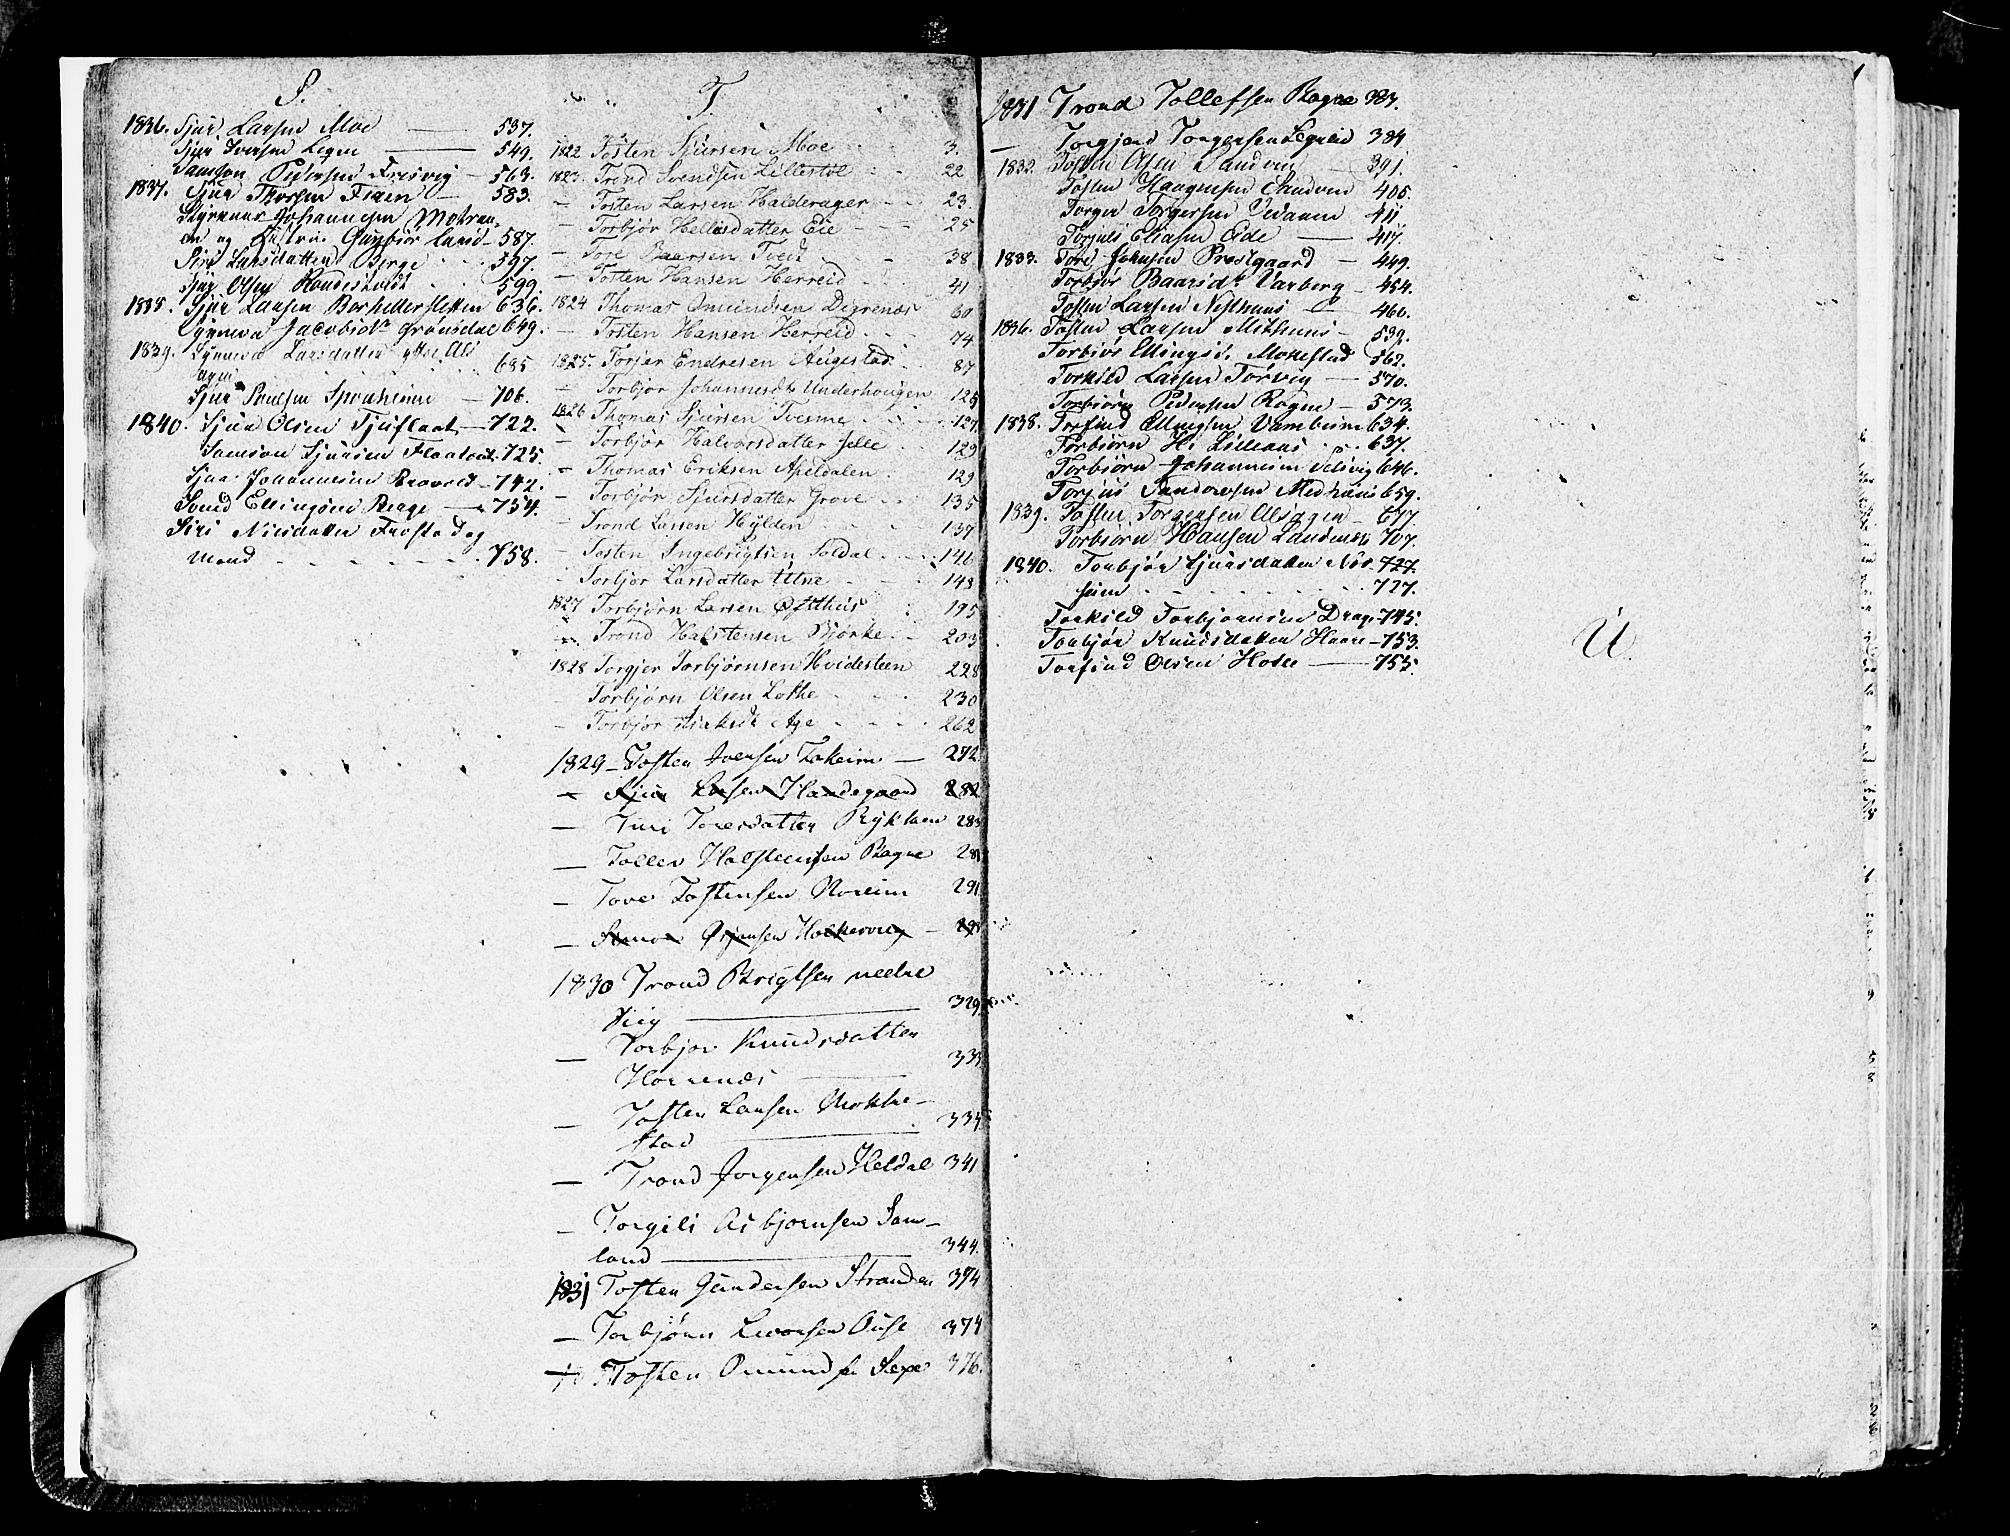 S.
1836. Sjur Larsen Moe — 537.
Sjur Iversen Legen — 549.
Samson Pedersen Fresvig — 563.
1837. Sjur Thorsen Fraen — 583.
Johannesen
en og Gunbjør — 587.
Siri Larsdatter Berge . . 597.
Sjur Olsen . . 599.
1838. Sjur Larsen 636.
Synneva Jacobsdr Grønsdal 649.
1839. Synneva Larsdatter yttre Als
agen . . . . . 685
Sjur Poulsen Sponheim — 706.
1840. Sjur Olsen Tjuflaat — 722.
Samson Sjursen Flaatene . 725.
Sjur Johannesen — 742.
Svend Ellingsen Berge — 754.
Siri Nilsdatter
mond - - - - - - . 758.
T.
1822 Tosten Sjursen Moe 3.
1823. Trond Svendsen Lillestøl - - 22
- Tosten Larsen Halderager - - 23.
- Torbjør Helliesdatter Eie - - - 25
- Tore Baarsen Tveit - - 38
- Tosten Hansen Herreid - - 41
1824 Thomas Omundsen Digrenæs 60
- Tosten Hansen Herreid - - 74
1825. Torjer Endresen Augestad - 87
- Torbjør Johannesdr Underhougen 125
1826 Thomas Sjursen Tvesme - - 127
- Torbjør Halvorsdatter Selle 129
- Thomas Eriksen Apeldalen 129
- Torbjør Sjursdatter Grove - - 135
- Trond Larsen Hylden - - 137
- Tosten Ingebrigtsen Soldal - - 146
- Torbjør Larsdatter Utne - - 148
1827 Torbjørn Larsen 195
- Trond Halstensen Bjørke - - 203
1828 Torgjer Torbjørnsen Hvidesteen 228
- Torbjørn Olsen Lothe - - - 230
- Torbjør Isaksdr Age - - - 262
1829 - Tosten Iversen Lakeim — 272
- Sjur Larsen Handegaard 282
— Turi Toresdatter 283
— Tollev Halsteensen Bagne 28
— Tove Tostensen Noreim 291
— Simon Ørjansen 298
1830 Trond Brigtsen nedre
— 329
— Torbjør Knudsdatter
Horrenæs — 333
— Tosten Larsen Mokke-
stad — 335
— Trond Jørgensen Heldal 341
— Torgils Asbjørnsen Sam-
land — 344.
1831 Tosten Gundersen Stranden 374
— Torbjørn Ivarsen 374
— Tosten Omundsen Sexe 376.
1831 Trond Tollefsen Bagne 383.
— Torgjerd Torgersen Legreid 384
1832. Tosten Olsen Sandven — 391.
Tosten Haagensen Sandven 405.
Torger Torgersen 411.
Torjuls Eliasen Eide — 417.
1833. Tore Johnsen Prestgaard — 449.
Torbjør Baarsdr Varberg - 454.
Tosten Larsen Nesthuus — 460.
1836. Tosten Larsen Midthuus — 539.
Torbiør Ellingsd. Mokestad 562.
Torkild Larsen Torvig — 570.
Torbiørn Pedersen Ragne — 573.
1838. Torfind Ellingsen Vambeim 634.
Torbiørn 637.
Torbiørn Johannesen Selsvig 646.
Torjus Sandersen Midhuus 659.
1839. Tosten Torgersen Alsagen — 677.
Torbiørn Hansen Landenæs 707.
1840. Torbjør Sjursdatter Nor- 727.
heim . . . . . . . . . 727.
Torkild Torbjørnsen Drag- 745.
Torbjør Knudsdatter Haare - 753.
Torfind Olsen — 755.
U.